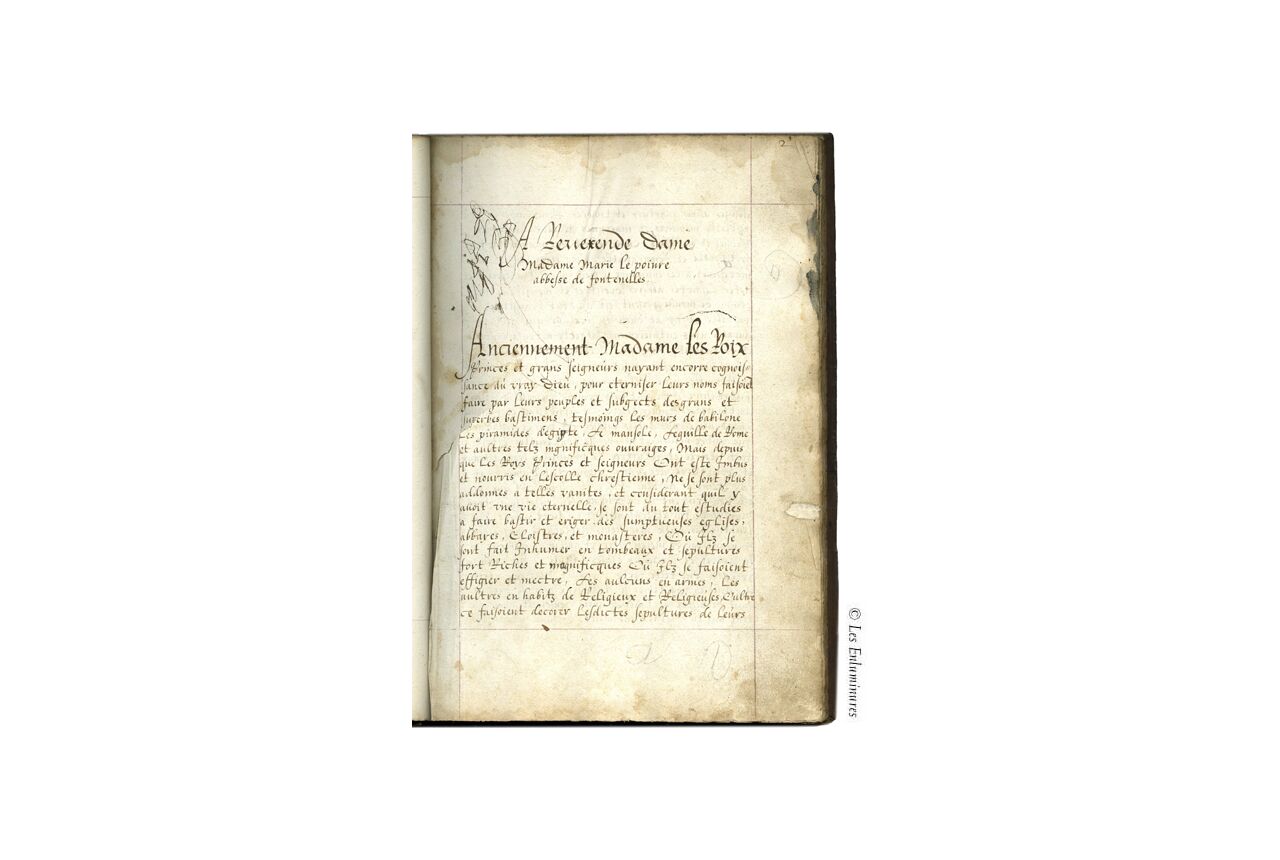 2
A Reverende dame
Madame Marie le poivre
abbesse de fontenelles
Anciennement Madame les Roix
Princes et grans seigneurs nayant encorre cognois-
sance du vray dieu, pour eterniser leurs noms faisoiẽt
faire par leurs peuples et subgects des grans et
superbes bastimens, tesmoings les murs de babilone
Les piramides degipte, Le mansole, Leguille de Rome
et aultres telz mgnificques ouvraiges, Mais depuis
que les Roys Princes et seigneurs Ont este Imbus
et nourris en Lescolle chrestienne, Ne se sont plus
addonnes a telles vanites, et considerant quil y
avoit vne vie eternelle, se sont du tout estudies
a faire bastir et eriger des sumptueuses eglises,
abbayes, Cloistres, et monasteres, Ou Ilz se
sont fait Inhumer en tombeaux et sepultures
fort Riches et magnificques Ou Ilz se faisoient
effigier et mectre, Les aulcuns en armes, Les
aultres en habitz de Religieux et Religieuses, Oultre
ce faisoient decorer Lesdictes sepultures de leurs
© Les Enluminures